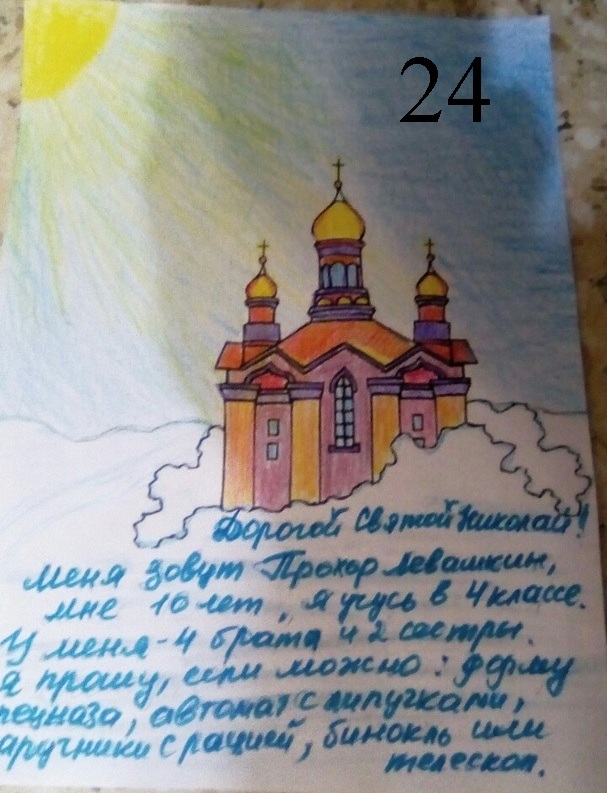 24
Дорогой Святой Николай!
Меня зовут Прохор Левашкин,
мне 10 лет, я учусь в 4 классе.
У меня - 4 брата и 2 сестры.
Я прошу, если можно: форму
пецназа, автомат с липучками,
аручники с рацией, бинокль или
телескоп.